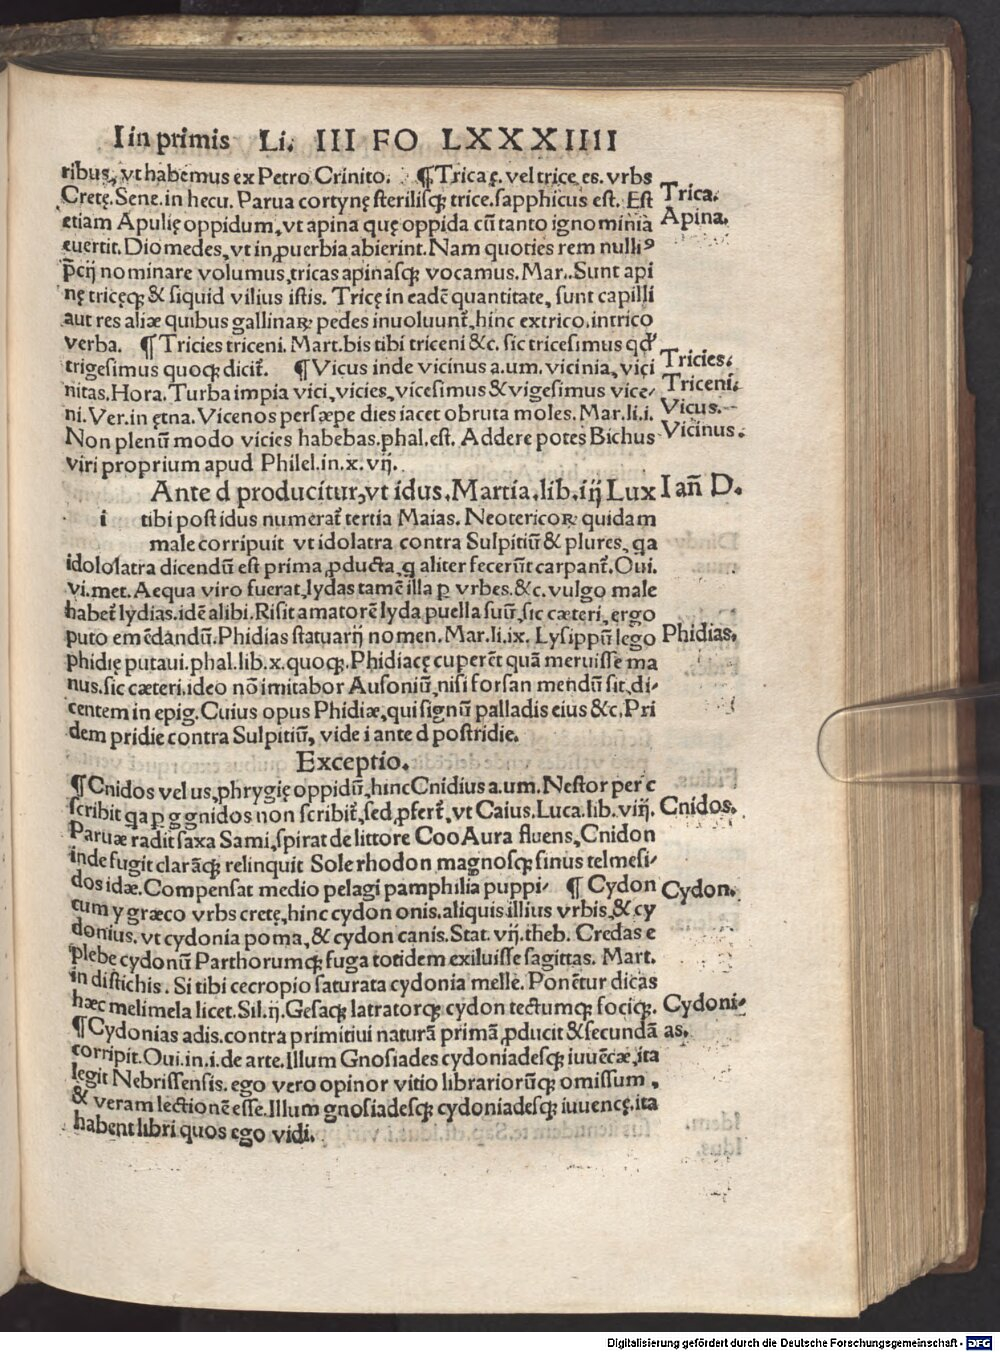 I in primis Li. III FO LXXXIIII
ribus, vt habemus ex Petro Crinito. ¶ Tricaę. vel trice, es. vrbs
Cretę. Sene. in hecu. Parua cortynę sterilisqꝫ trice. sapphicus est. Est
Trica.
etiam Apulię oppidum, vt apina quę oppida cū tanto ignominia
Apina.
euertit. Diomedes, vt in ꝓuerbia abierint. Nam quoties rem nulliꝰ
p̄cij nominare volumus, tricas apinasqꝫ vocamus. Mar.. Sunt api
nę tricęqꝫ & siquid vilius istis. Tricę in eadē quantitate, sunt capilli
aut res aliæ quibus gallinaꝝ pedes inuoluunt᷑, hinc extrico, intrico
verba. ¶ Tricies triceni. Mart. bis tibi triceni &c. sic tricesimus qđ
trigesimus quoqꝫ dicit᷑. ¶ Vicus inde vicinus a. um. vicinia, vici
Tricies.
nitas. Hora. Turba impia vici, vicies, vicesimus & vigesimus vice/
Triceni.
ni. Ver. in ętna. Vicenos persæpe dies iacet obruta moles. Mar. li. i.
Vicus.
Non plenū modo vicies habebas. phal. est. Addere potes Bichus
Vicinus.
viri proprium apud Philel. in. x. vij.
Ante d producitur, vt idus. Martia. lib. iij Lux
I añ D.
i tibi post idus numerat᷑ tertia Maias. Neotericoꝝ quidam
male corripuit vt idolatra contra Sulpitiū & plures, qa
idololatra dicendū est prima ꝓducta, q aliter fecerūt carpant᷑. Oui.
vi. met. Aequa viro fuerat, lydas tamē illa ꝑ vrbes. &c. vulgo male
habet᷑ lydias. idē alibi. Risit amatorē lyda puella suū, sic cæteri, ergo
puto emēdandū. Phidias statuarij nomen. Mar. li. ix. Lysippū lego
Phidias.
phidię putaui. phal. lib. x. quoqꝫ. Phidiacę cuperēt quā meruisse ma
nus. sic cæteri. ideo nō imitabor Ausoniū, nisi forsan mendū sit, di/
centem in epig. Cuius opus Phidiæ, qui signū palladis eius &c. Pri
dem pridie contra Sulpitiū, vide i ante d postridie.
Exceptio.
¶ Cnidos vel us, phrygię oppidū, hinc Cnidius a. um. Nestor per c
scribit qa ꝑ g gnidos non scribit᷑, sed ꝓfert᷑, vt Caius. Luca. lib. viij.
Cnidos.
Paruæ radit saxa Sami, spirat de littore Coo Aura fluens, Cnidon
inde fugit clarāqꝫ relinquit Sole rhodon magnosqꝫ sinus telmesi/
dos idæ. Compensat medio pelagi pamphilia puppi/ ¶ Cydon
Cydon.
cum y græco vrbs cretę, hinc cydon onis. aliquis illius vrbis, & cy
donius. vt cydonia poma, & cydon canis. Stat. vij. theb. Credas e
plebe cydonū Parthorumqꝫ fuga totidem exiluisse sagittas. Mart.
in distichis. Si tibi cecropio saturata cydonia melle. Ponētur dicas
hæc melimela licet. Sil. ij. Gesaqꝫ latratorqꝫ cydon tectumqꝫ fociqꝫ.
Cydoni/
¶ Cydonias adis. contra primitiui naturā primā ꝓducit & secundā
as.
corripit. Oui. in. i. de arte. Illum Gnosiades cydoniadesqꝫ iuuēcæ, ita
legit Nebrissensis. ego vero opinor vitio librariorū qꝫ omissum,
& veram lectionē esse. Illum gnosiadesqꝫ cydoniadesqꝫ iuuencę. ita
habent libri quos ego vidi.
Digitalisierung gefördert durch die Deutsche Forschungsgemeinschaft - DFG